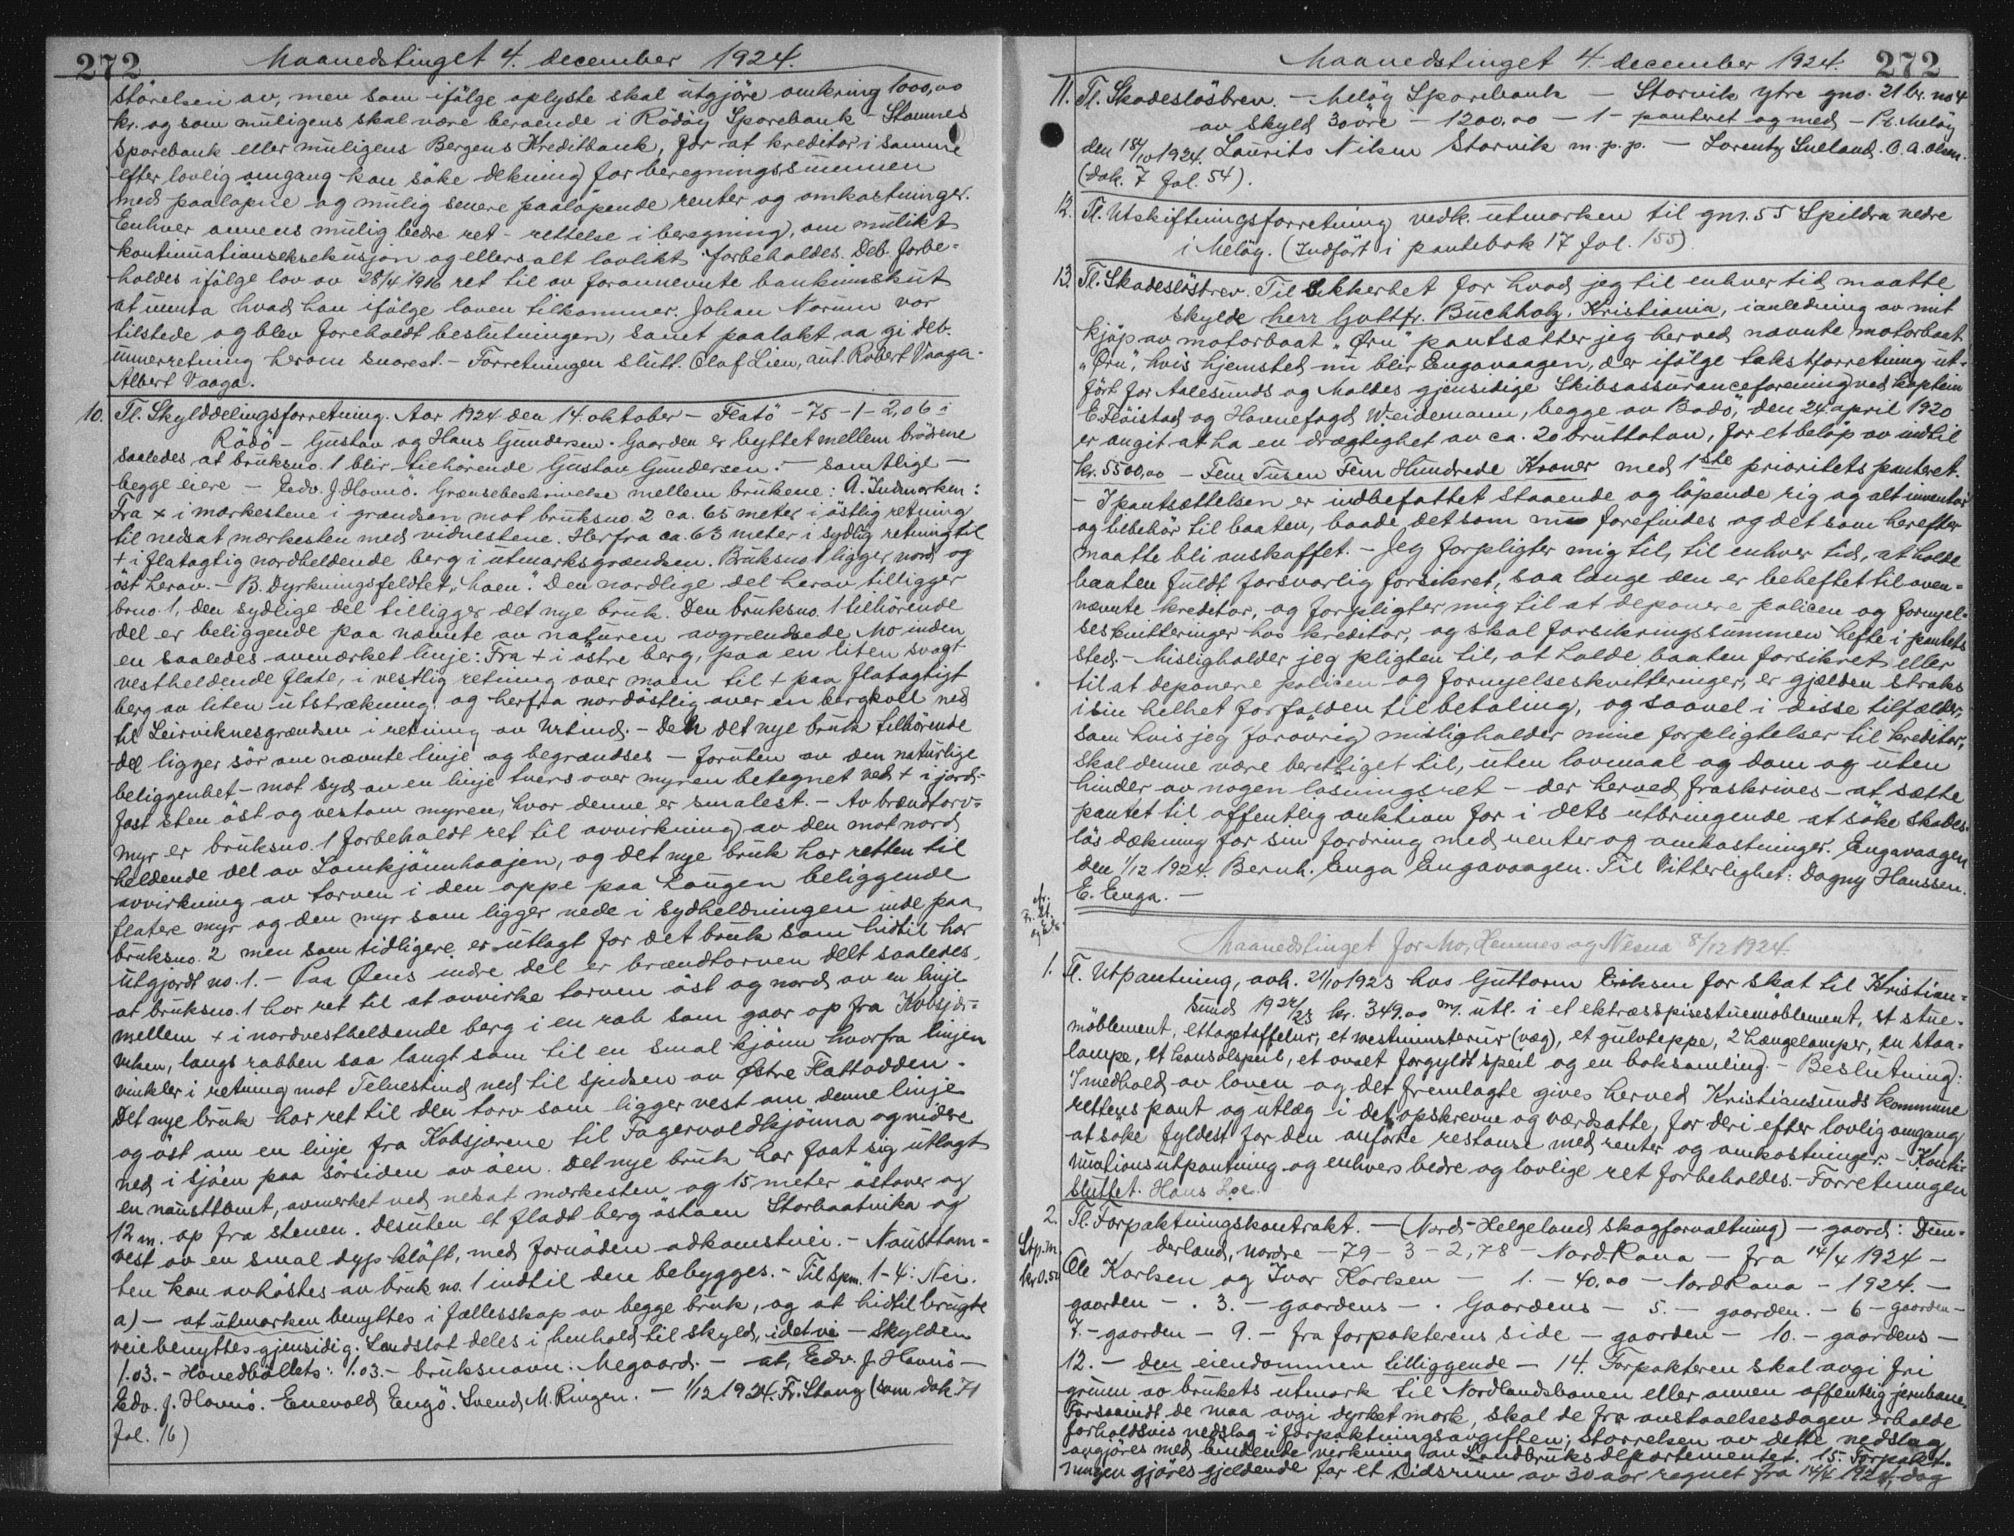 272
Maanedstinget 4. december 1924.
störelsen av, men som ifölge oplyste skal utgjöre omkring 1000,00
kr. og som muligens skal være beroende i Rödöy Sparebank - Stamnes
Sparebank eller muligens Bergens Kreditbank, for at kreditor i samme
efter lovlig omgang kan söke dekning for beregningssummen
med paalöpne og mulig senere paalöpende renter og omkostninger.
Enhver annens mulig bedre ret - rettelse i beregning, om mulikt
kontinuationseksekusjon og ellers alt lovlikt forbeholdes. Deb. forbe-
holdes ifölge lov av 28/4 1916 ret til av forannevnte bankinnskut
at unnta hvad han ifölge loven tilkommer. Johan Norum var
tilstede og blev foreholdt beslutningen, samt paatokt aa gi deb.
unnerretning herom snarest. - Forretningen slutt. Olaf Lien, aut. Robert Vaaga.
Albert Vaaga.
10. Tl. Skylddelingsforretning. Aar 1924 den 14. oktober - Flatö - 75 - 1 - 2,06 i
Rödö - Gustav og Hans Gundersen. Gaarden er byttet mellem brödrene
saaledes at bruksno. 1 blir tilhörende Gustav Gundersen. - samtlige -
begge eiere - Edv. J. Havnö. Grænsebeskrivelse mellem brukene: A. Indmarken:
Fra x i merkestene i grændsen mot bruksno. 2 ca. 65 meter i östlig retning
til nedsat mærkesten med vidnestene. Herfra ca. 63 meter i sydlig retning til
+ i flatagtig nordheldende berg i utmarksgrændsen. Bruksno 1 ligger nord og
öst herav. - B. Dyrkningsfeldtet "Moen". Den nordlige del herav tilligger
brno. 1, den sydlige del tilligger det nye bruk. Den bruksno. 1 tilhörende
del er beliggende paa nævnte av naturen avgrændsede Mo inden
en saaledes avmærket linje: Fra + i östre berg, paa en liten svagt
vestheldende flate, i vestlig retning over moen til + paa flatagtigt
berg av liten utstrækning og herfra nordöstlig over en bergkoll ned
til Leirviknesgrændsen i retning av Urtind. - Den det nye bruk tilhörende
del ligger sör om nævnte linje og begrændses - foruten av den naturlige
beliggenhet - mot syd av en linje tvers over myren betegnet ved + i jord-
fast sten öst og vestom myren, hvor denne er smalest. - Av brændtorv-
myr er bruksno. 1 forbeholdt ret til avvirkning av den mot nord
heldende del av Lomkjönnhaajen, og det nye bruk har retten til
avvirkning av torven i den oppe paa haugen beliggende
flatere myr og den myr som ligger nede i sydheldningen inde paa
bruksno. 2 men som tidligere er utlagt for det bruk som hidtil har
utgjordt no. 1. - Paa Öens indre del er brændtorven delt saaledes,
at bruksno. 1 har ret til at avvirke torven öst og nord av en linje
mellem + i nordvestheldende berg i en rab som gaar op fra Kobsjer-
viken, langs rabben saa langt som til en smal kjönn hvorfra linjen
vinkler i retning mot Telnestind ned til spidsen av Östre Flattodden.
Det nye bruk har ret til den torv som ligger vest om denne linje
og öst om en linje fra Kobsjærene til Fagervoldkjönna og videre
ned i sjöen paa sörsiden av öen. Det nye bruk har faat sig utlagt
en nausttomt, avmerket ved nedsat mærkesten og 15 meter östover og
12 m. op fra stenen. Desuten et fladt berg östom Storbaatvika og
vest av en smal dyp klöft, med fornöden adkomstvei. - Nausttom-
ten kan avhöstes av bruk no. 1 indtil den bebygges. - Til Spm. 1-4: Nei.
a) - at utmarken benyttes i fællesskap av begge bruk, og at hidtil brugte
veie benyttes gjensidig. Landslot deles i henhold til skyld, idet vi - Skylden
1.03. - Hovedböllets: 1.03. - bruksnavn: Megaard. - at, Edv. J. Havnö -
Edv. J. Havnö. Enevold Engö. Svend M. Ringen. - 1/12 1924. Fr. Stang (som dok 71
fol. 16)
Maanedstinget 4. december 1924.
272
11. Tl. Skadeslösbrev. - Melöy Sparebank - Storvik ytre gno. 21 br. no 4
av skyld 30 öre - 1200.00 - 1 - panteret og med - Pt. Melöy
den 18/10 1924. Laurits Nilsen Storvik m. p. p. - Lorentz Sneland. O. A. Olsen.
(dok. 7 fol. 54).
12. Tl. Utskiftningsforretning vedk. utmarken til gnr. 55 Spildra nedre
i Melöy. (Indfört i pantebok 17 fol. 155)
13. Tl. Skadeslösbrev. Til sikkerhet for hvad jeg til enhver tid maatte
skylde herr Gottfr. Buchholz, Kristiania, i anledning av mit
kjöp av motorbaat "Örn" pantsætter jeg herved nævnte motorbaat
"Örn", hvis hjemsted nu blir Engavaagen, der ifölge takstforretning ut-
fört for Aalesunds og Moldes gjensidige Skibsassuranceforening ved kaptein
E. Flöistad og Havnefogd Weidemann, begge av Bodö, den 24 april 1920
er angit at ha en drægtighet av ca. 20 bruttoton, for et belöp av indtil
kr. 5500,00 - Fem Tusen Fem Hundrede Kroner med 1ste prioritets panteret.
- I pantsættelsen er indbefattet staaende og löpende rig og alt inventar
og tilbehör til baaten, baade det som nu forefindes og det som herefter
maatte bli anskaffet. - Jeg forpligter mig til, til enhver tid, at holde
baaten fuldt forsvarlig forsikret, saa længe den er beheftet til oven-
nævnte kreditor, og forpligter mig til at deponere policen og fornyel-
seskvitteringer hos kreditor, og skal forsikringssummen hefte i pantets
sted. - Misligholder jeg pligten til, at holde baaten forsikret eller
til at deponere policen og fornyelseskvitteringer, er gjælden straks
i sin helhet forfalden til betaling, og saavel i disse tilfælder,
som hvis jeg forövrig misligholder mine forpligtelser til kreditor,
skal denne være berettiget til, uten lovmaal og dom og uten
hinder av nogen lösningsret - der herved fraskrives - at sætte
pantet til offentlig auktion for i dets utbringende at söke skades-
lös dækning for sin fordring med renter og omkostninger. Engavaagen
den 1/12 1924. Bernh. Enga Engavaagen. Til Vitterlighet: Dagny Hanssen.
E. Enga. -
Maanedstinget for Mo, Hemnes og Nesna 8/12 1924.
1. Tl. Utpantning, avh. 21/10 1923 hos Guttorm Eriksen for skat til Kristian-
sund 1922/23 kr. 349.00 m/. utl. i et ektræsspisestuemöblement, et stue-
möblement, et tagetaffelur, et westminsterur (væg), et gulvteppe, 2 hængelamper, en staa-
lampe, et konsolspeil, et ovalt forgyldt speil og en boksamling. - Beslutning:
I medhold av loven og det fremlagte gives herved Kristiansunds kommune
rettens pant og utlæg i det opskrevne og værdsatte, for deri efter lovlig omgang
at söke fyldest for den anförte restanse med renter og omkostninger. - Konti-
nuationsutpantning og enhvers bedre og lovlige ret forbeholdes. - Forretningen
sluttet. Hans Loe.
2. Tl. Forpaktningskontrakt. - (Nord-Helgeland skogforvaltning) - gaard: Dun-
Stp. m. kr 0.50
derland, nordre - 79 - 3 - 2,78 - Nord-Rana - fra 14/4 1924 -
Ole Karlsen og Ivar Karlsen - 1. - 40.00 - Nord Rana - 1924. -
gaarden - . 3. - gaardens - . Gaardens - 5. - gaarden. - 6 - gaarden -
7. - gaarden - 9. - fra forpakterens side - gaarden - 10. - gaardens -
12. - den eiendommen tilliggende - 14. Forpakteren skal avgi fri
grunn av brukets utmark til Nordlandsbanen eller annen offentlig jernbane.
Forsaavidt de maa avgi dyrket mark, skal de fra avstaaelsesdagen erholde
forholdsvis nedslag i forpaktningsavgiften; störrelsen av dette nedslag
avgjöres med bindende virkning av Landbruksdepartementet. 15. Forpakt-
ningen gjöres gjeldende for et tidsrum av 30 aar regnet fra 14/4 1924, dog